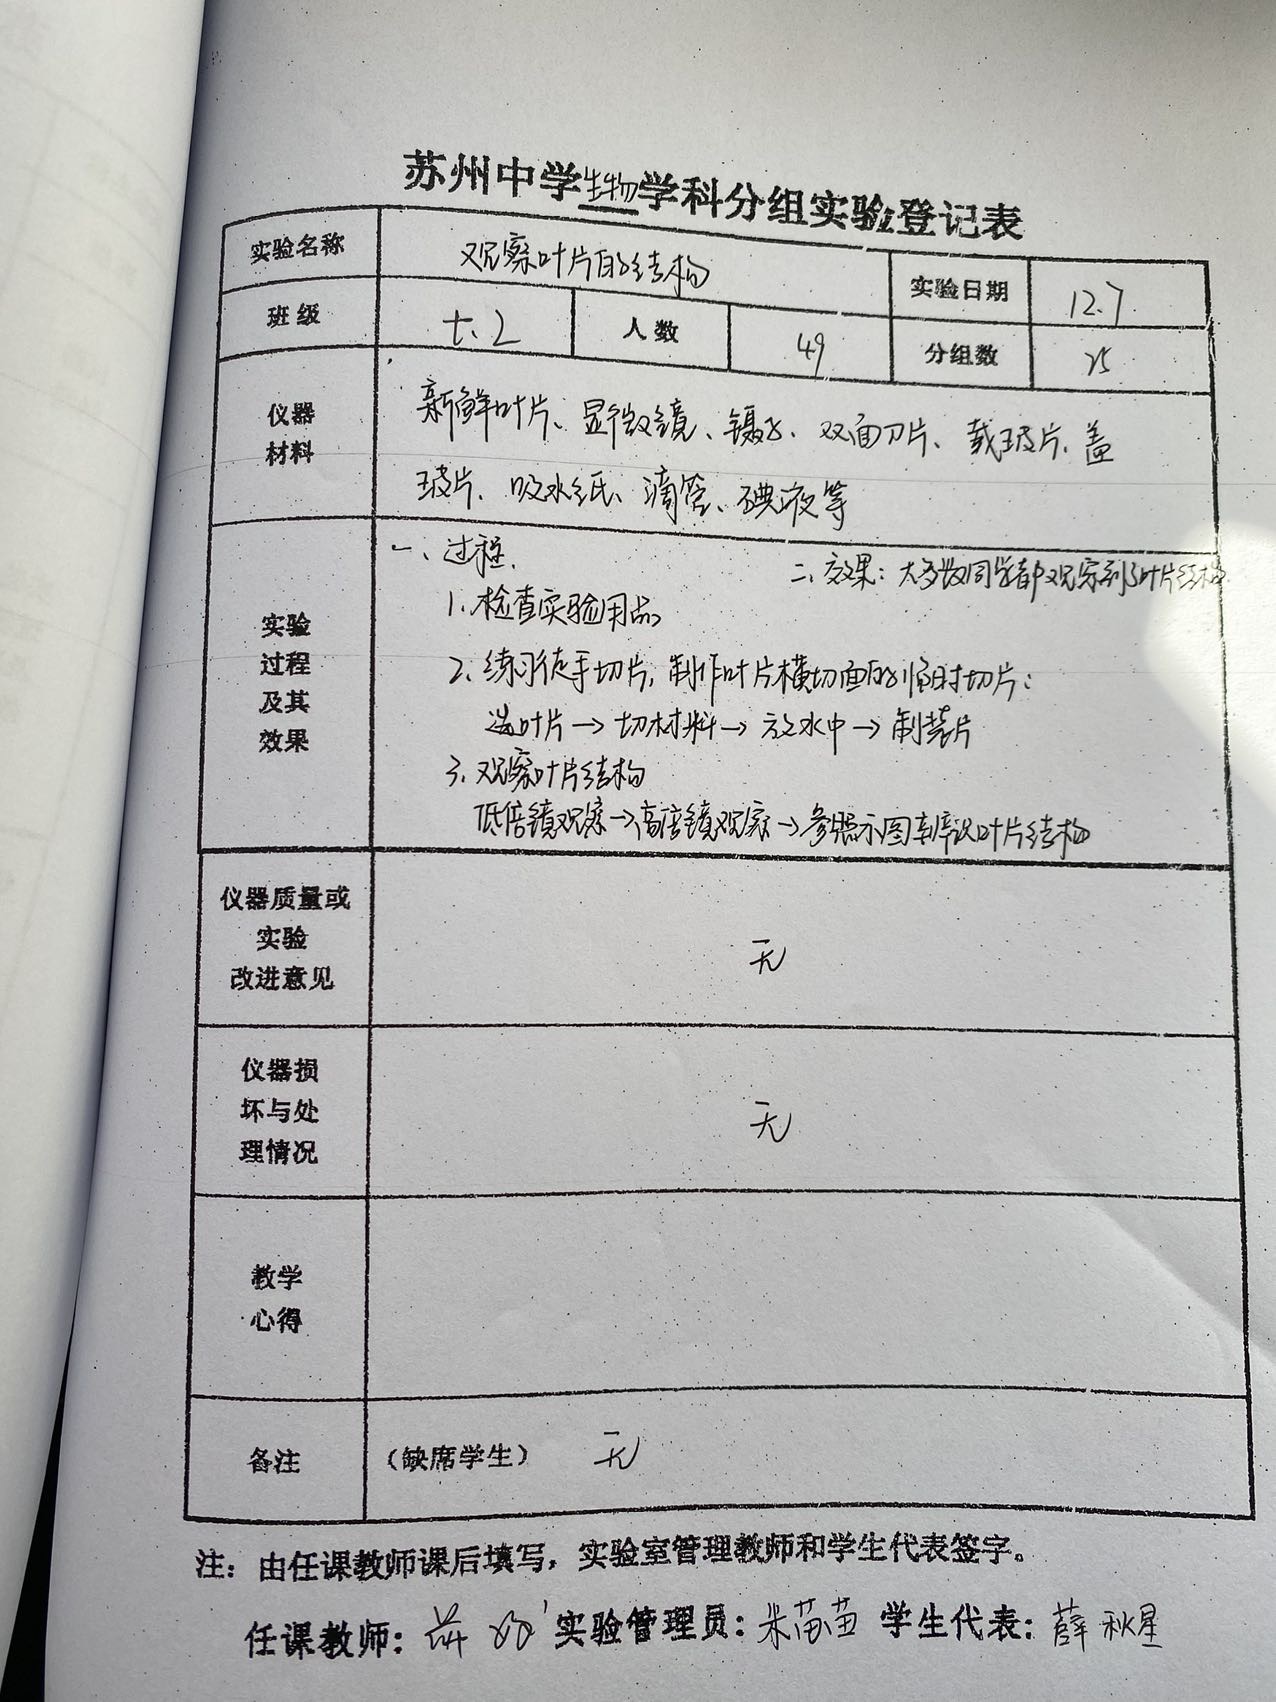 苏州中学生物学科分组实验登记表
实验名称 观察叶片的结构 实验日期 12.7
班级 七.2 人数 49 分组数 25
仪器材料 新鲜叶片、显微镜、镊子、双面刀片、载玻片、盖
玻片、吸水纸、滴管、碘液等
实验过程及其效果
一、过程.
二、效果：大多数同学都观察到了叶片结构
1、检查实验用品
2、练习徒手切片，制作叶片横切面的临时切片：
选叶片→切材料→放水中→制装片
3、观察叶片结构
低倍镜观察→高倍镜观察→参照示图来辨识叶片结构
仪器质量或实验改进意见 无
仪器损坏与处理情况 无
教学心得
备注 （缺席学生） 无
注：由任课教师课后填写，实验室管理教师和学生代表签字。
任课教师： 实验管理员：朱苗苗 学生代表：薛秋星